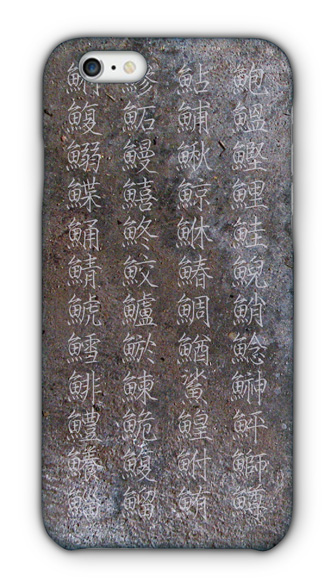 鮑鰮鰹鯉鮭鯢鮹鯰鰰鮃鰤鱒
鮎鯆鰍鯨鮴鰆鯛鰌鯊鰉鮒鮪
鯵鮖鰻鱚鮗鮫鱸鯲鰊鮠鰡
鰒鰯鰈鯒鯖鯱鱈鯡鱧鱶鯔